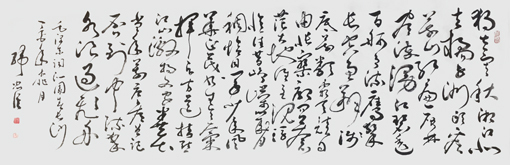 独立寒秋湘江北
去橘子洲头看
万山红遍层林
尽染漫江碧透
百舸争流鹰击
长空鱼翔浅
底万类霜天竞自
由怅寥廓问苍
茫大地谁主沉浮
忆往昔峥嵘岁月
稠恰同学少年风
华正茂书生意气
挥斥方遒指点
江山激扬文字粪土
当年万户侯曾记
否到中流击
水浪遏飞舟
毛泽东词沁园春长沙